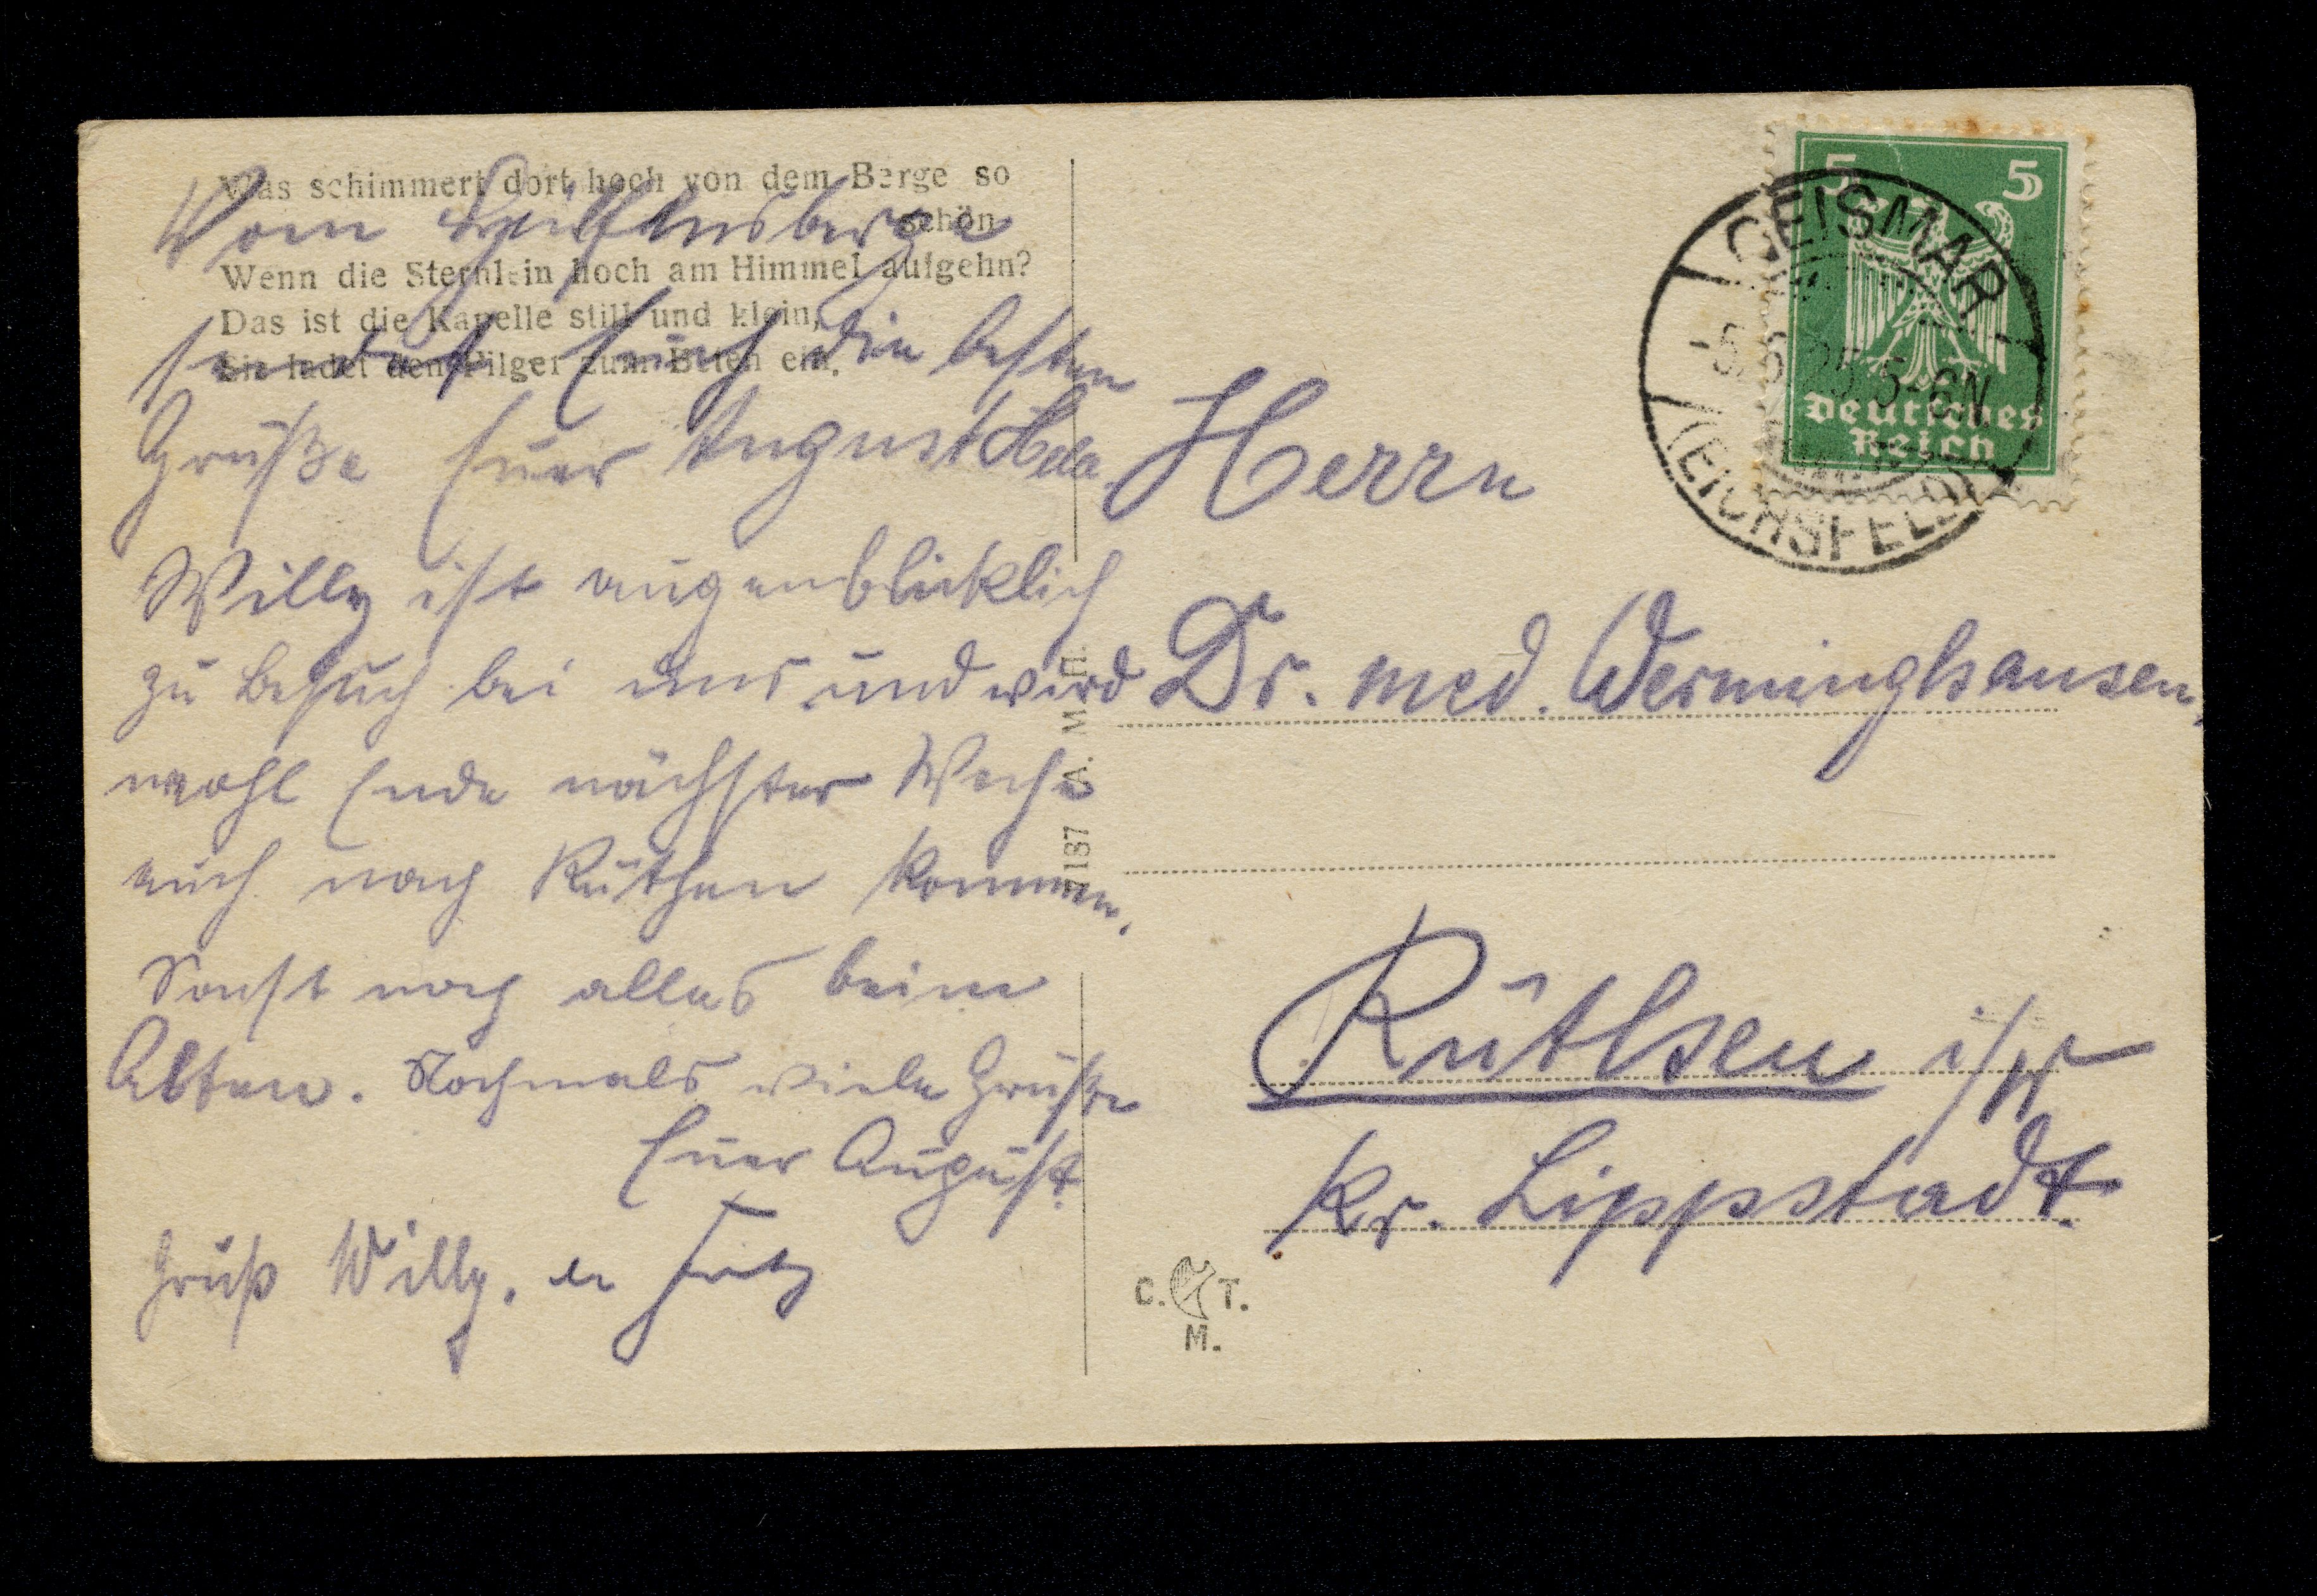 Was schimmert dort hoch von dem Berge so
schön
Wenn die Sternlein hoch am Himmel aufgehn?
Das ist die Kapelle still und klein,
Sie ladet den Pilger zum Beten ein.
Vom Hülfensberge
sendet Euch die besten
Grüße Euer August
Willy ist augenblicklich
zu Besuch bei uns und wird
wohl Ende nächster Woche
auch nach Rüthen kommen.
Sonst noch alles beim
Alten. Nochmals viele Grüße
Euer August
Gruß Willy. Fritz
5 5
Deutsches
Reich
GEISMAR
25 5-6N
(EICHSFELD)
Herrn
Dr. med. Werminghausen,
Rüthen i/W
Kr. Lippstadt.
C. T.
M.